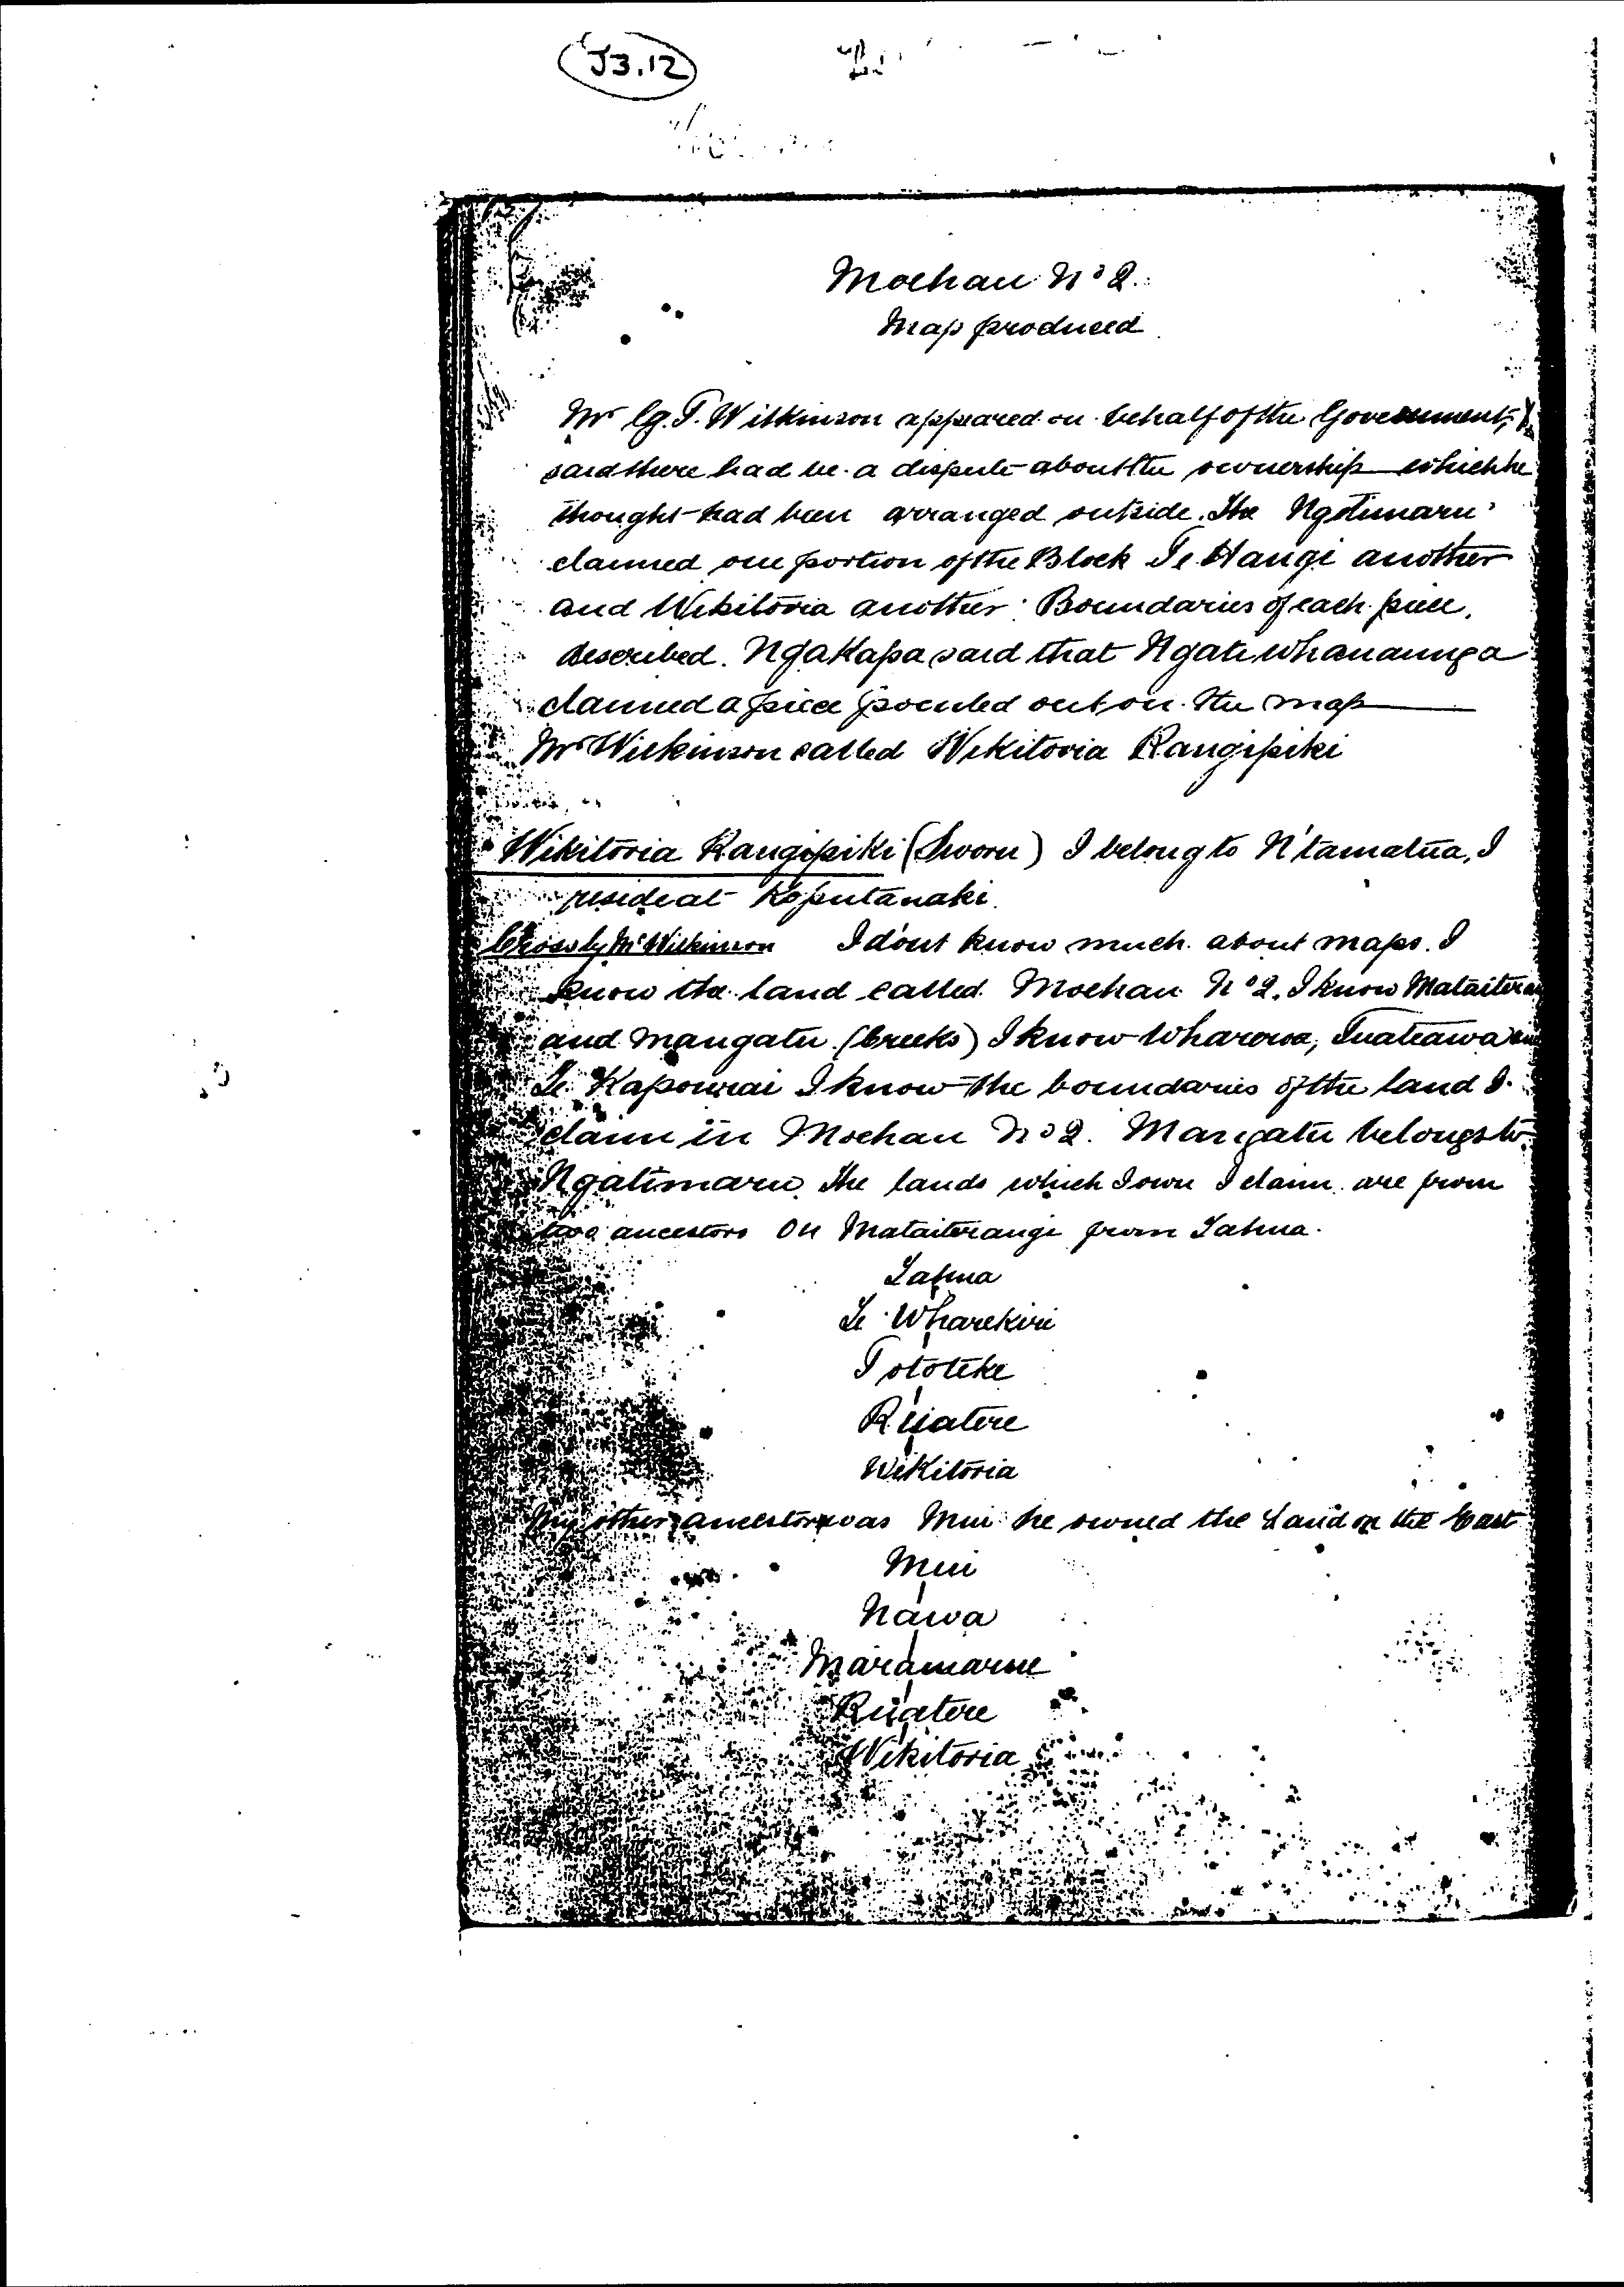 J3.12
Moehau No 2.
Map produced
Mr G. T. Wilkinson appeared on behalf of the Government, &
said there had be a dispute about the ownership which he
thought had been arranged outside. The Ngatimaru
claimed one portion of the Block Te Hangi another
and Wikitoria another. Boundaries of each piece.
described. Ngakapa said that Ngatiwhanaunga
claimed a piece pointed out on the map
Mr Wilkinson called Wikitoria Rangipiki
Wikitoria Rangipiki (Sworn) I belong to N'tamatua, I
reside at Koputanaki.
Cross by Mr Wilkinson I dont know much about maps. I
know the land called Moehau No 2. I know Mataiteran
and Mangatu (Creeks) I know Wharoroa, Tuateawa and
Te Kapowai I know the boundaries of the land I
claim in Moehau No 2. Mangatu belongs to
Ngatimaru. The lands which I own I claim are from
two ancestors on Mataiterangi from Tahua.
Tahua
Te Wharekiri
Tototeke
Ruatere
Wikitoria
My other ancestor was Mui he owned the land on the East
Mui
Nawa
Maramarue
Ruatere
Wikitoria